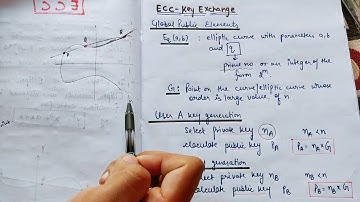 ECC
ECC - Key Exchange
Global Public Elements
Eq (a,b) : elliptic curve with parameters a,b
and q
prime no. or an integer of the
form 2^m
G : Point on the curve/elliptic curve whose
order is large value of n
User A Key generation
Select private key nA nA < n
calculate public key PA PA = nA × G
Key generation
select private key nB nB < n
calculate public key PB PB = nB × G